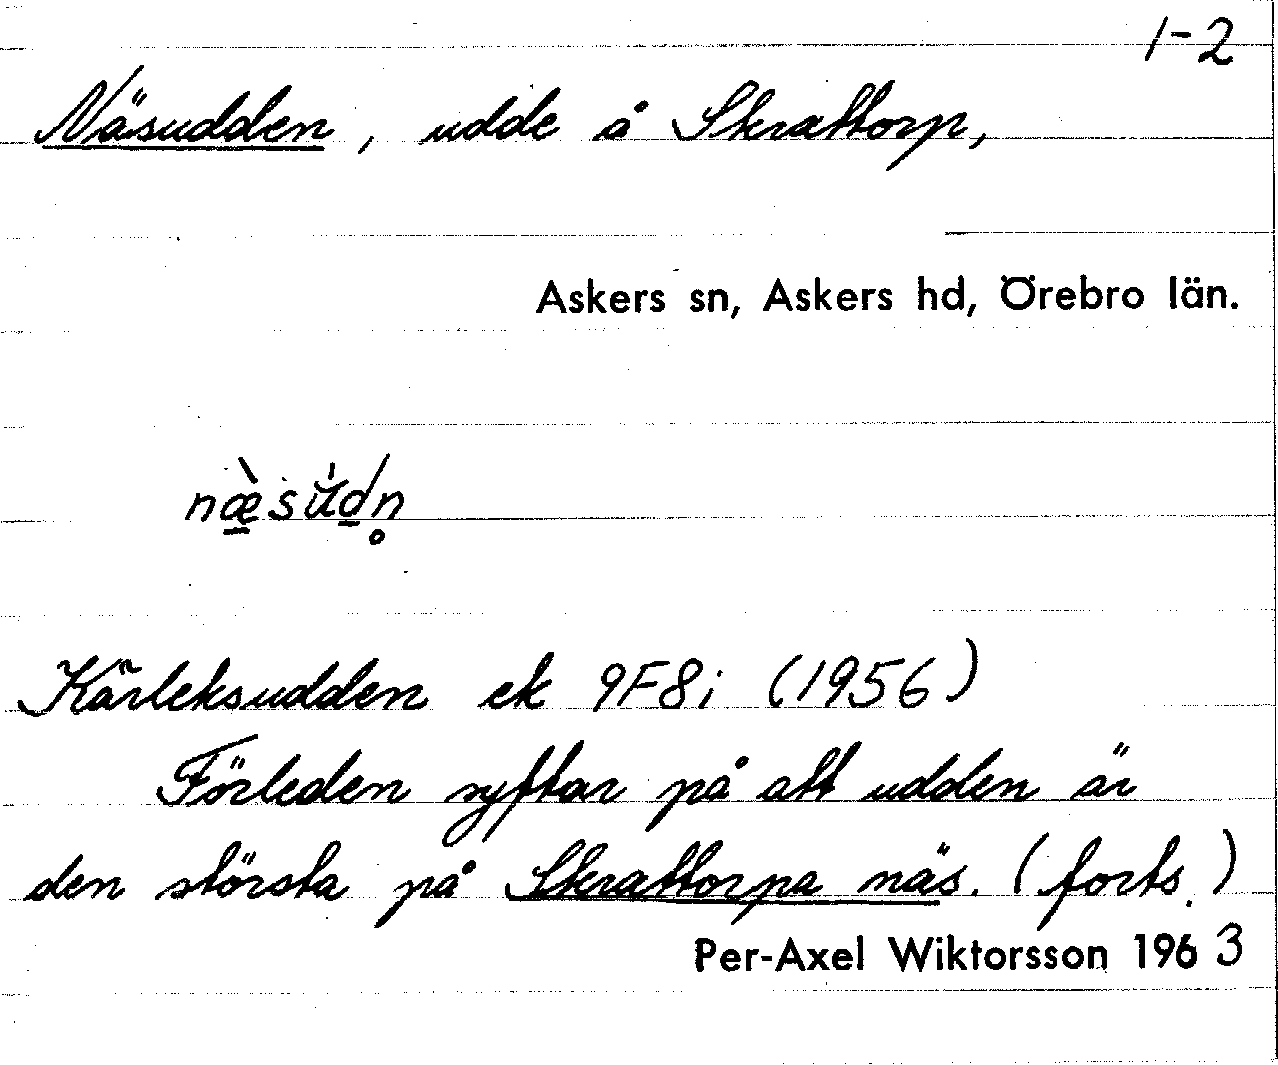 1-2
Näsudden, udde å Skrattorp,
Askers sn, Askers hd, Örebro län.
næ̠̀sǘd̠n̥
Kärleksudden ek 9F8i (1956)
Förleden syftar på att udden är
den största på Skrattorpa näs. (forts.)
Per-Axel Wiktorsson 1963